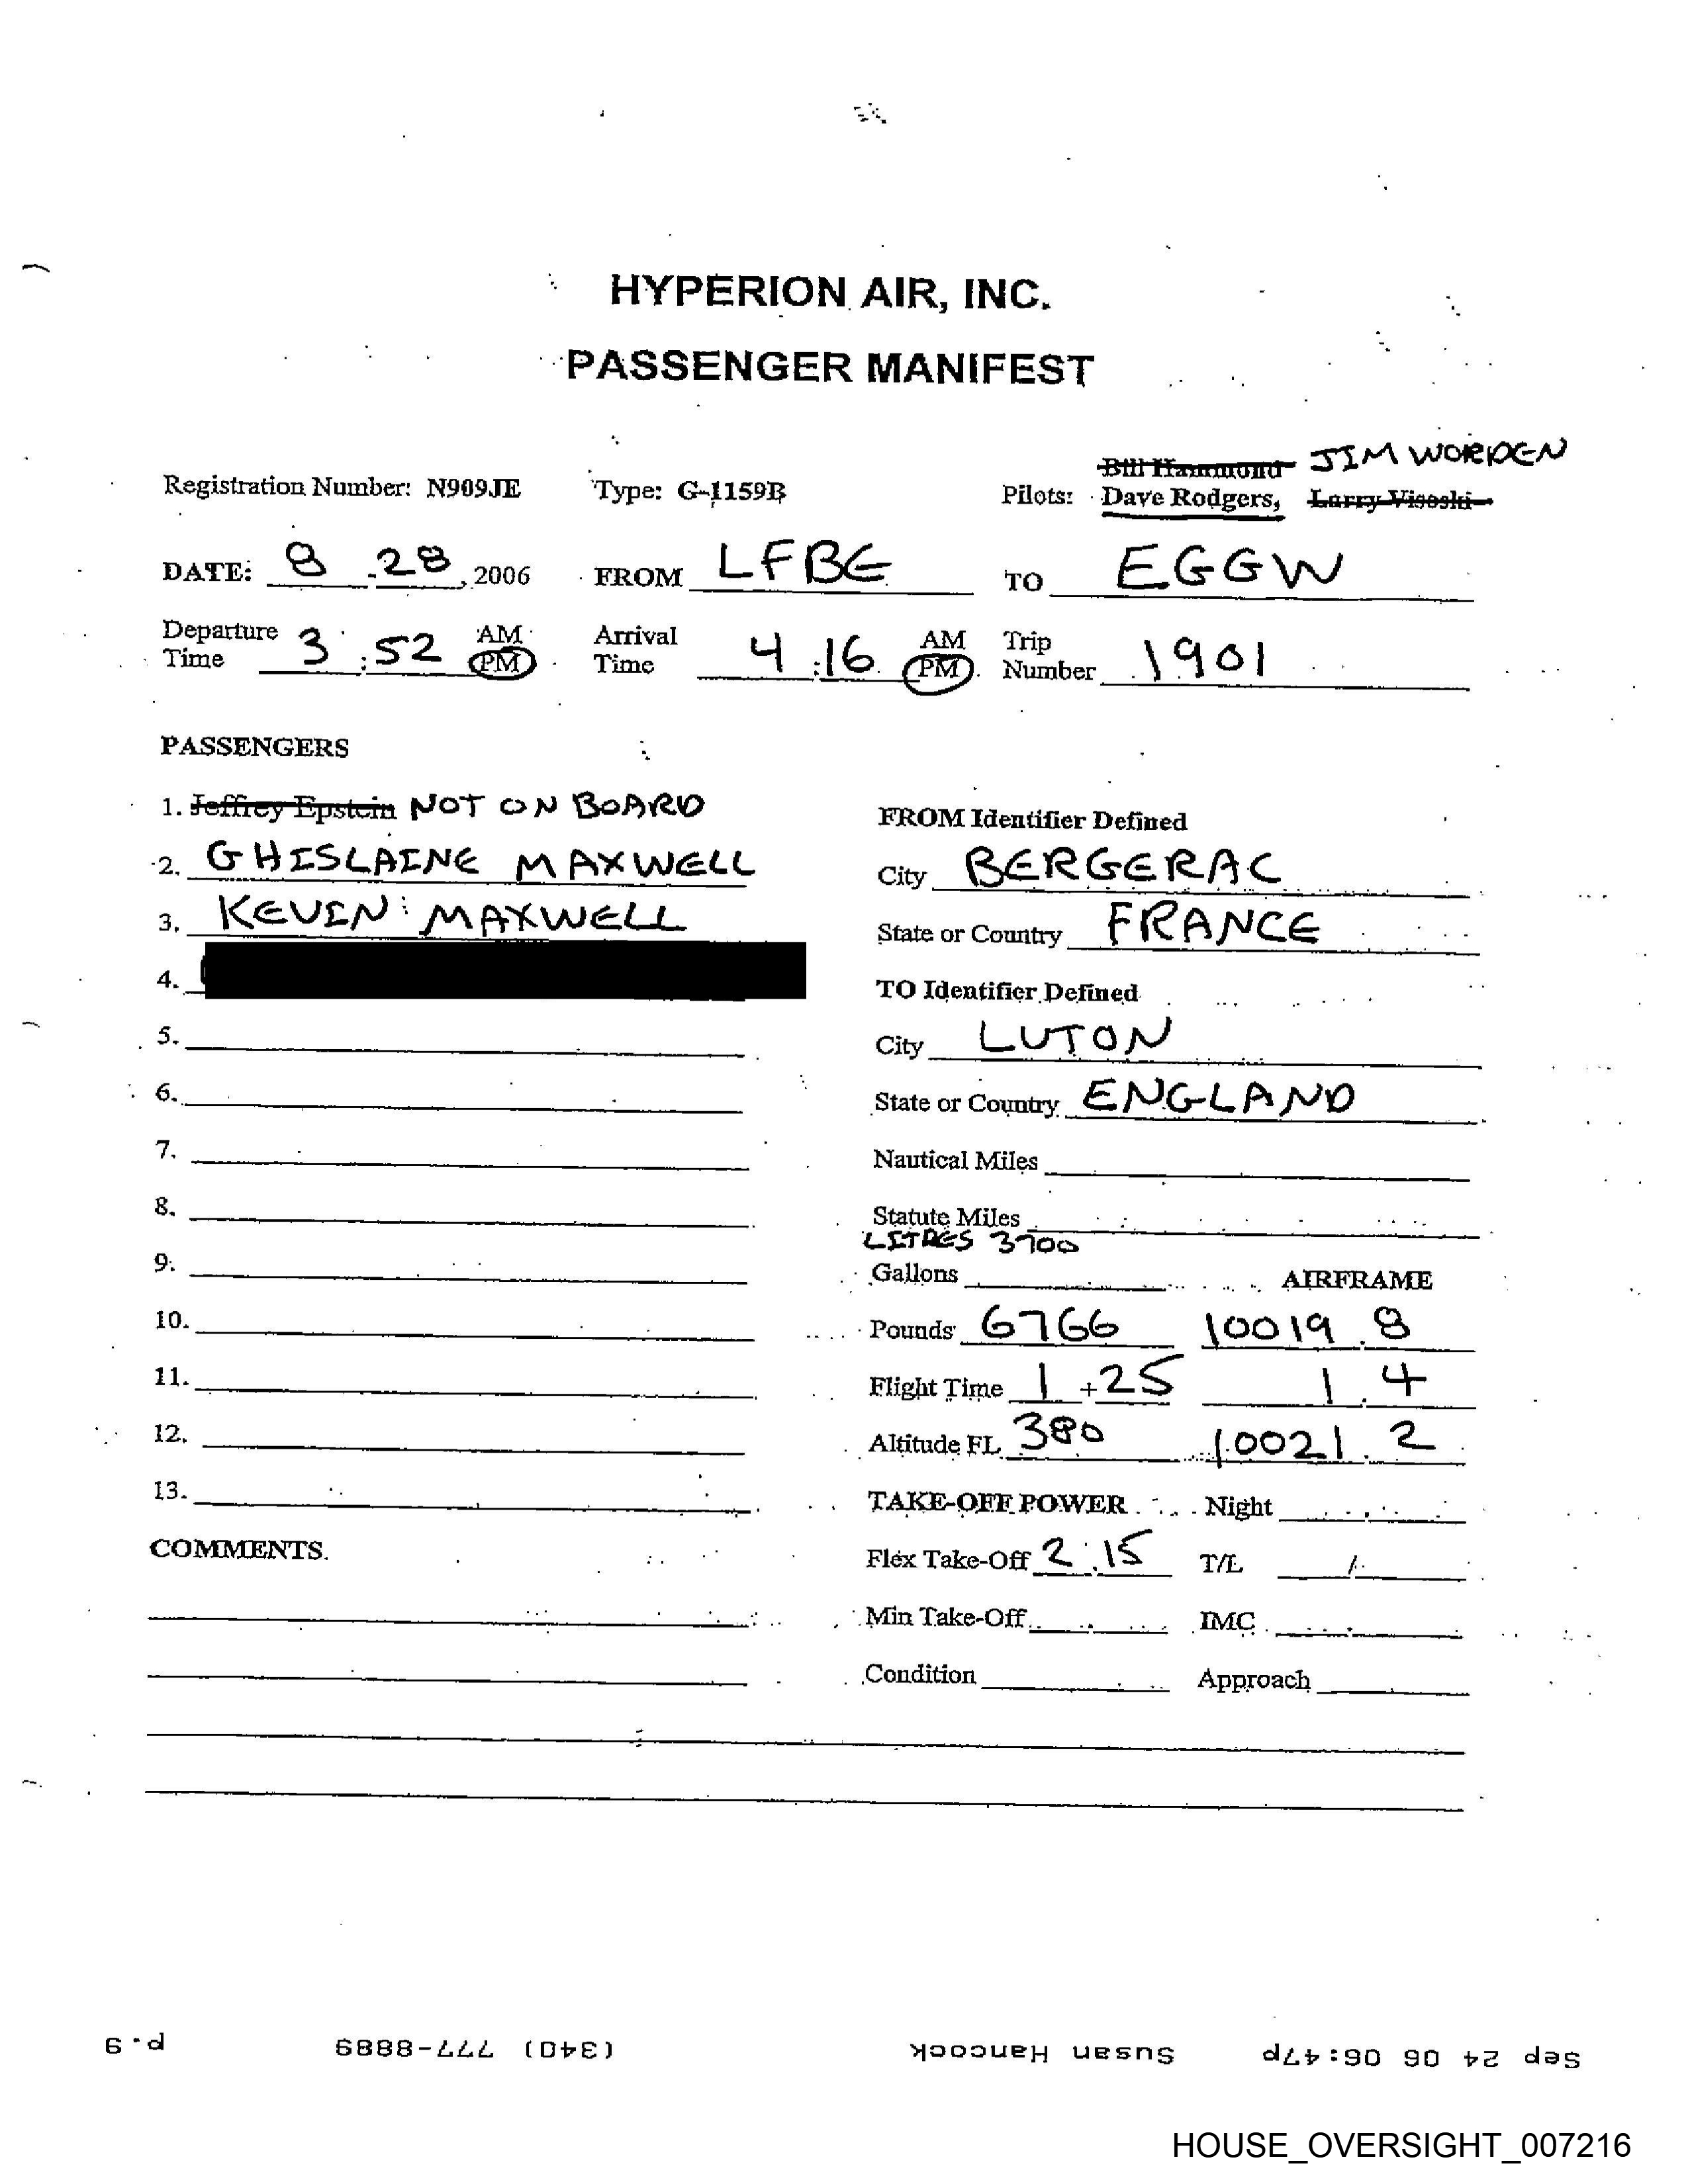 HYPERION AIR, INC.
PASSENGER MANIFEST
Registration Number: N909JE Type: G-1159B Pilots: Bill Hammond JIM WORDEN
Dave Rodgers, Larry Visoski
DATE: 8 28, 2006 FROM LFBE TO EGGW
Departure Time 3:52 AM PM Arrival Time 4:16 AM PM Trip Number 1901
PASSENGERS
1. Jeffrey Epstein NOT ON BOARD
2. GHISLAINE MAXWELL
3. KEVIN MAXWELL
4.
5.
6.
7.
8.
9.
10.
11.
12.
13.
COMMENTS
FROM Identifier Defined
City BERGERAC
State or Country FRANCE
TO Identifier Defined
City LUTON
State or Country ENGLAND
Nautical Miles
Statute Miles
LITRES 3700
Gallons AIRFRAME
Pounds 6766 10019.8
Flight Time 1+25 1.4
Altitude FL 380 10021.2
TAKE-OFF POWER Night
Flex Take-Off 2.15 T/L /
Min Take-Off IMC
Condition Approach
Sep 24 06 06:47p Susan Hancock (340) 777-8889 p.9
HOUSE_OVERSIGHT_007216